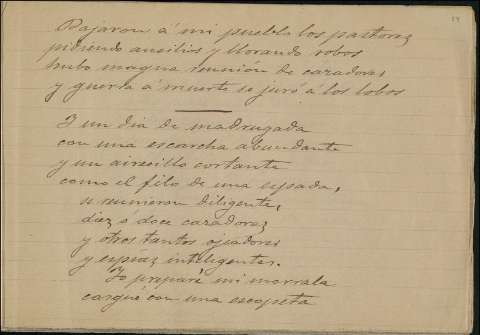 Bajaron á mi pueblo los pastores
pidiendo ausilios y llorando robos
hubo magna reunión de cazadores
y guerra á muerte se juró á los lobos
Y un dia de madrugada
con una escarcha abundante
y un airecillo cortante
como el filo de una espada,
se reunieron diligente,
diez ó doce cazadores
y otros tantos ojeadores
y espias inteligentes.
Yo preparé mi morrala
cargué con una escopeta